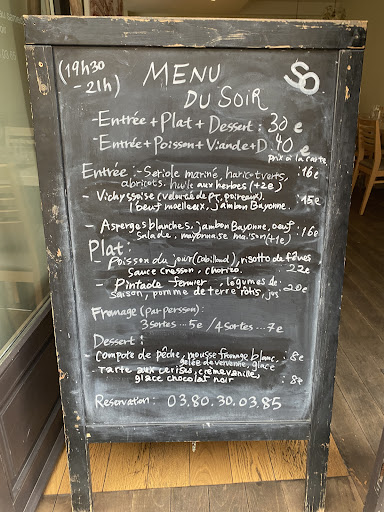 (19h30
- 21h)
MENU
DU SOIR
SO
- Entrée + Plat + Dessert : 30 e
- Entrée + Poisson + Viande + D. 40 e
Prix à la carte
Entrée : - Seriole mariné, haricot verts, : 16 e
abricots, huile aux herbes (+2e)
- Vichyssoise (velouté de PT, poireaux). : 15 e
1 oeuf moelleux, jambon Bayonne.
- Asperges blanches, jambon Bayonne, oeuf : 16 e
Salade, mayonnaise maison (+1e)
Plat :
- Poisson du jour (cabillaud), risotto de fèves
Sauce cresson, chorizo. : 22 e
- Pintade fermier, légumes de : 20 e
saison, pomme de terre rôtis, jus
Fromage (par persson) :
3 sortes ... 5e / 4 sortes ... 7e
Dessert :
- Compote de pêche, mousse fromage blanc, : 8 e
gelée de verveine, glace
- Tarte aux cerises, crème vanille,
glace chocolat noir : 8 e
Reservation : 03.80.30.03.85